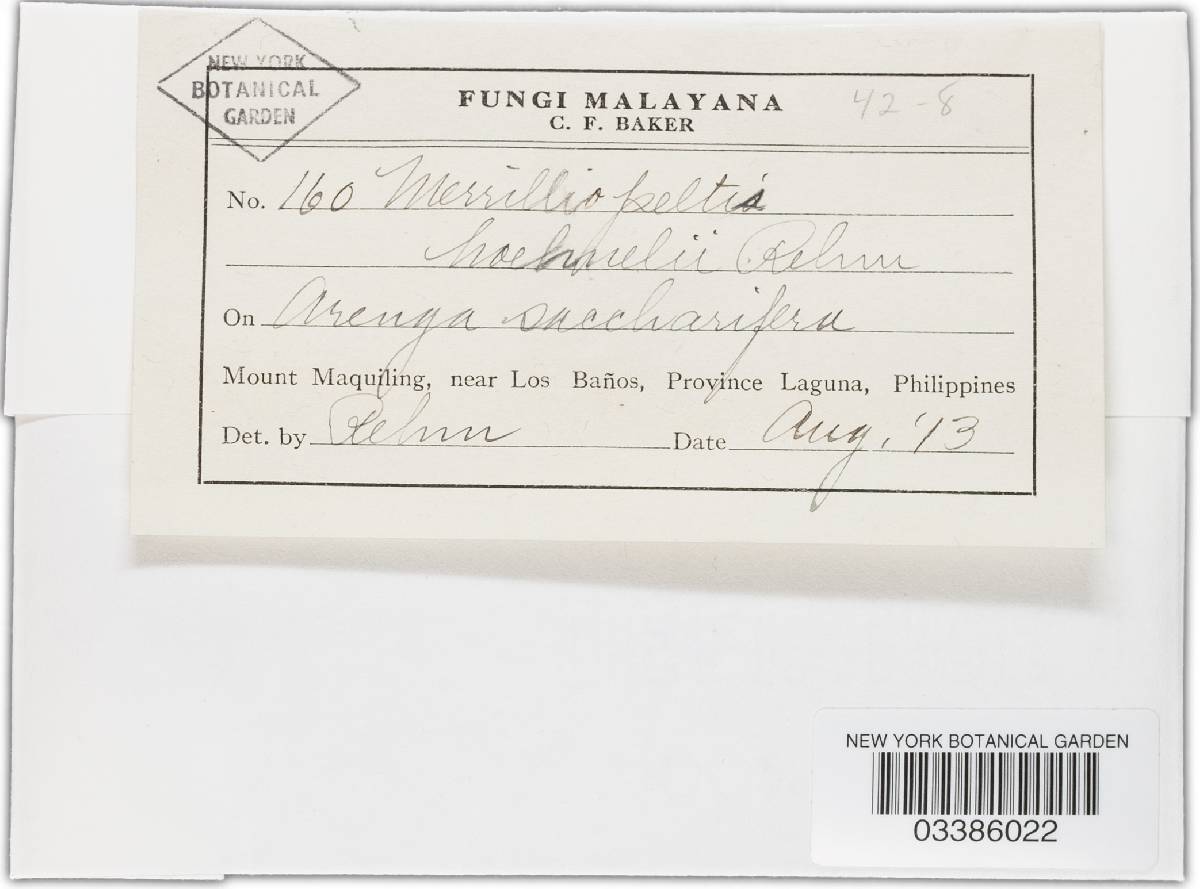 NEW YORK
BOTANICAL
GARDEN
FUNGI MALAYANA
42-8
C. F. BAKER
No. 160 Merrilliopeltis
hoehnelii Rehm
On Arenga saccharifera
Mount Maquiling, near Los Baños, Province Laguna, Philippines
Det. by Rehm Date Aug, '13
NEW YORK BOTANICAL GARDEN
03386022